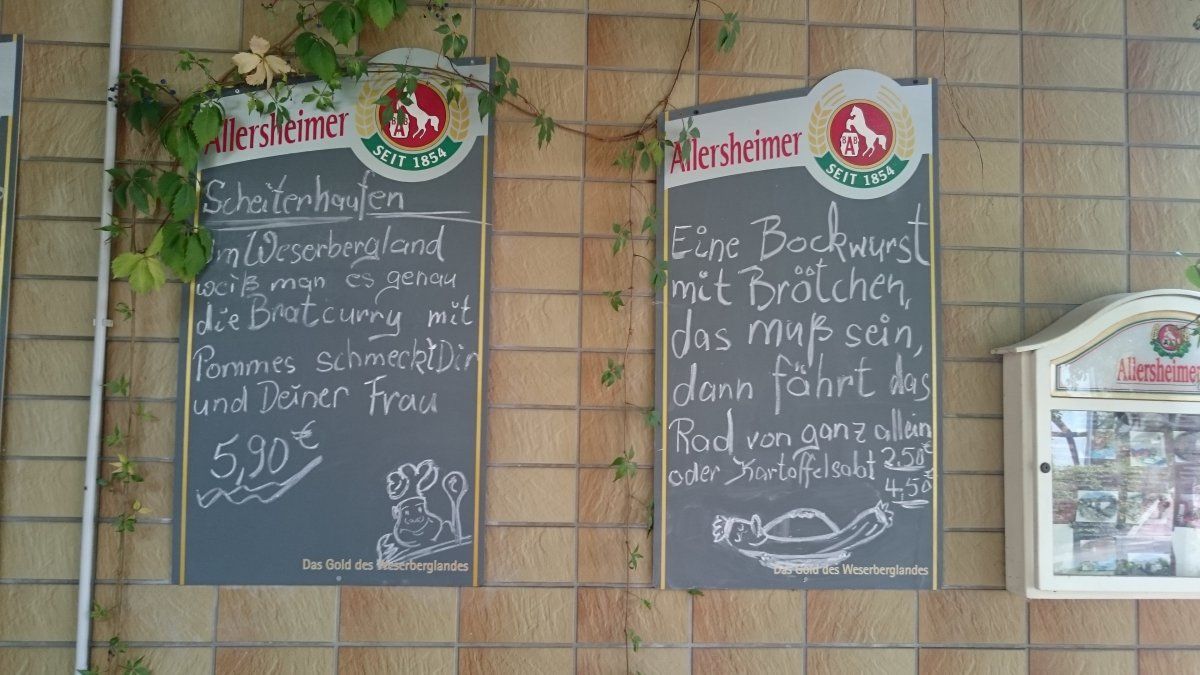 Allersheimer
BAB
SEIT 1854
Scheiterhaufen
im Weserbergland
weiß man es genau
die Bratcurry mit
Pommes schmeckt Dir
und Deiner Frau
5,90 €
Das Gold des Weserberglandes
Allersheimer
BAB
SEIT 1854
Eine Bockwurst
mit Brötchen,
das muß sein,
dann fährt das
Rad von ganz allein
2,50 €
oder Kartoffelsalat
4,50 €
Das Gold des Weserberglandes
Allersheimer